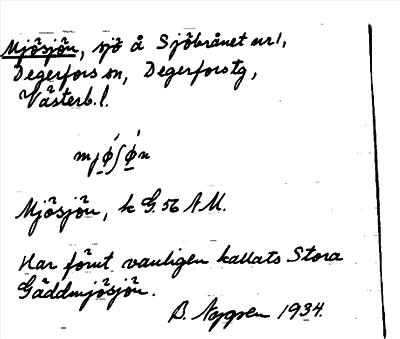 Mjösjön, sjö å Sjöbrånet nr 1,
Degerfors sn, Degerfors tg,
Västerb. l.
mjǿʃǿn
Mjösjön, k G. 56 NM.
Har förut vanligen kallats Stora
Gäddmjösjön.
B. Nygren 1934.